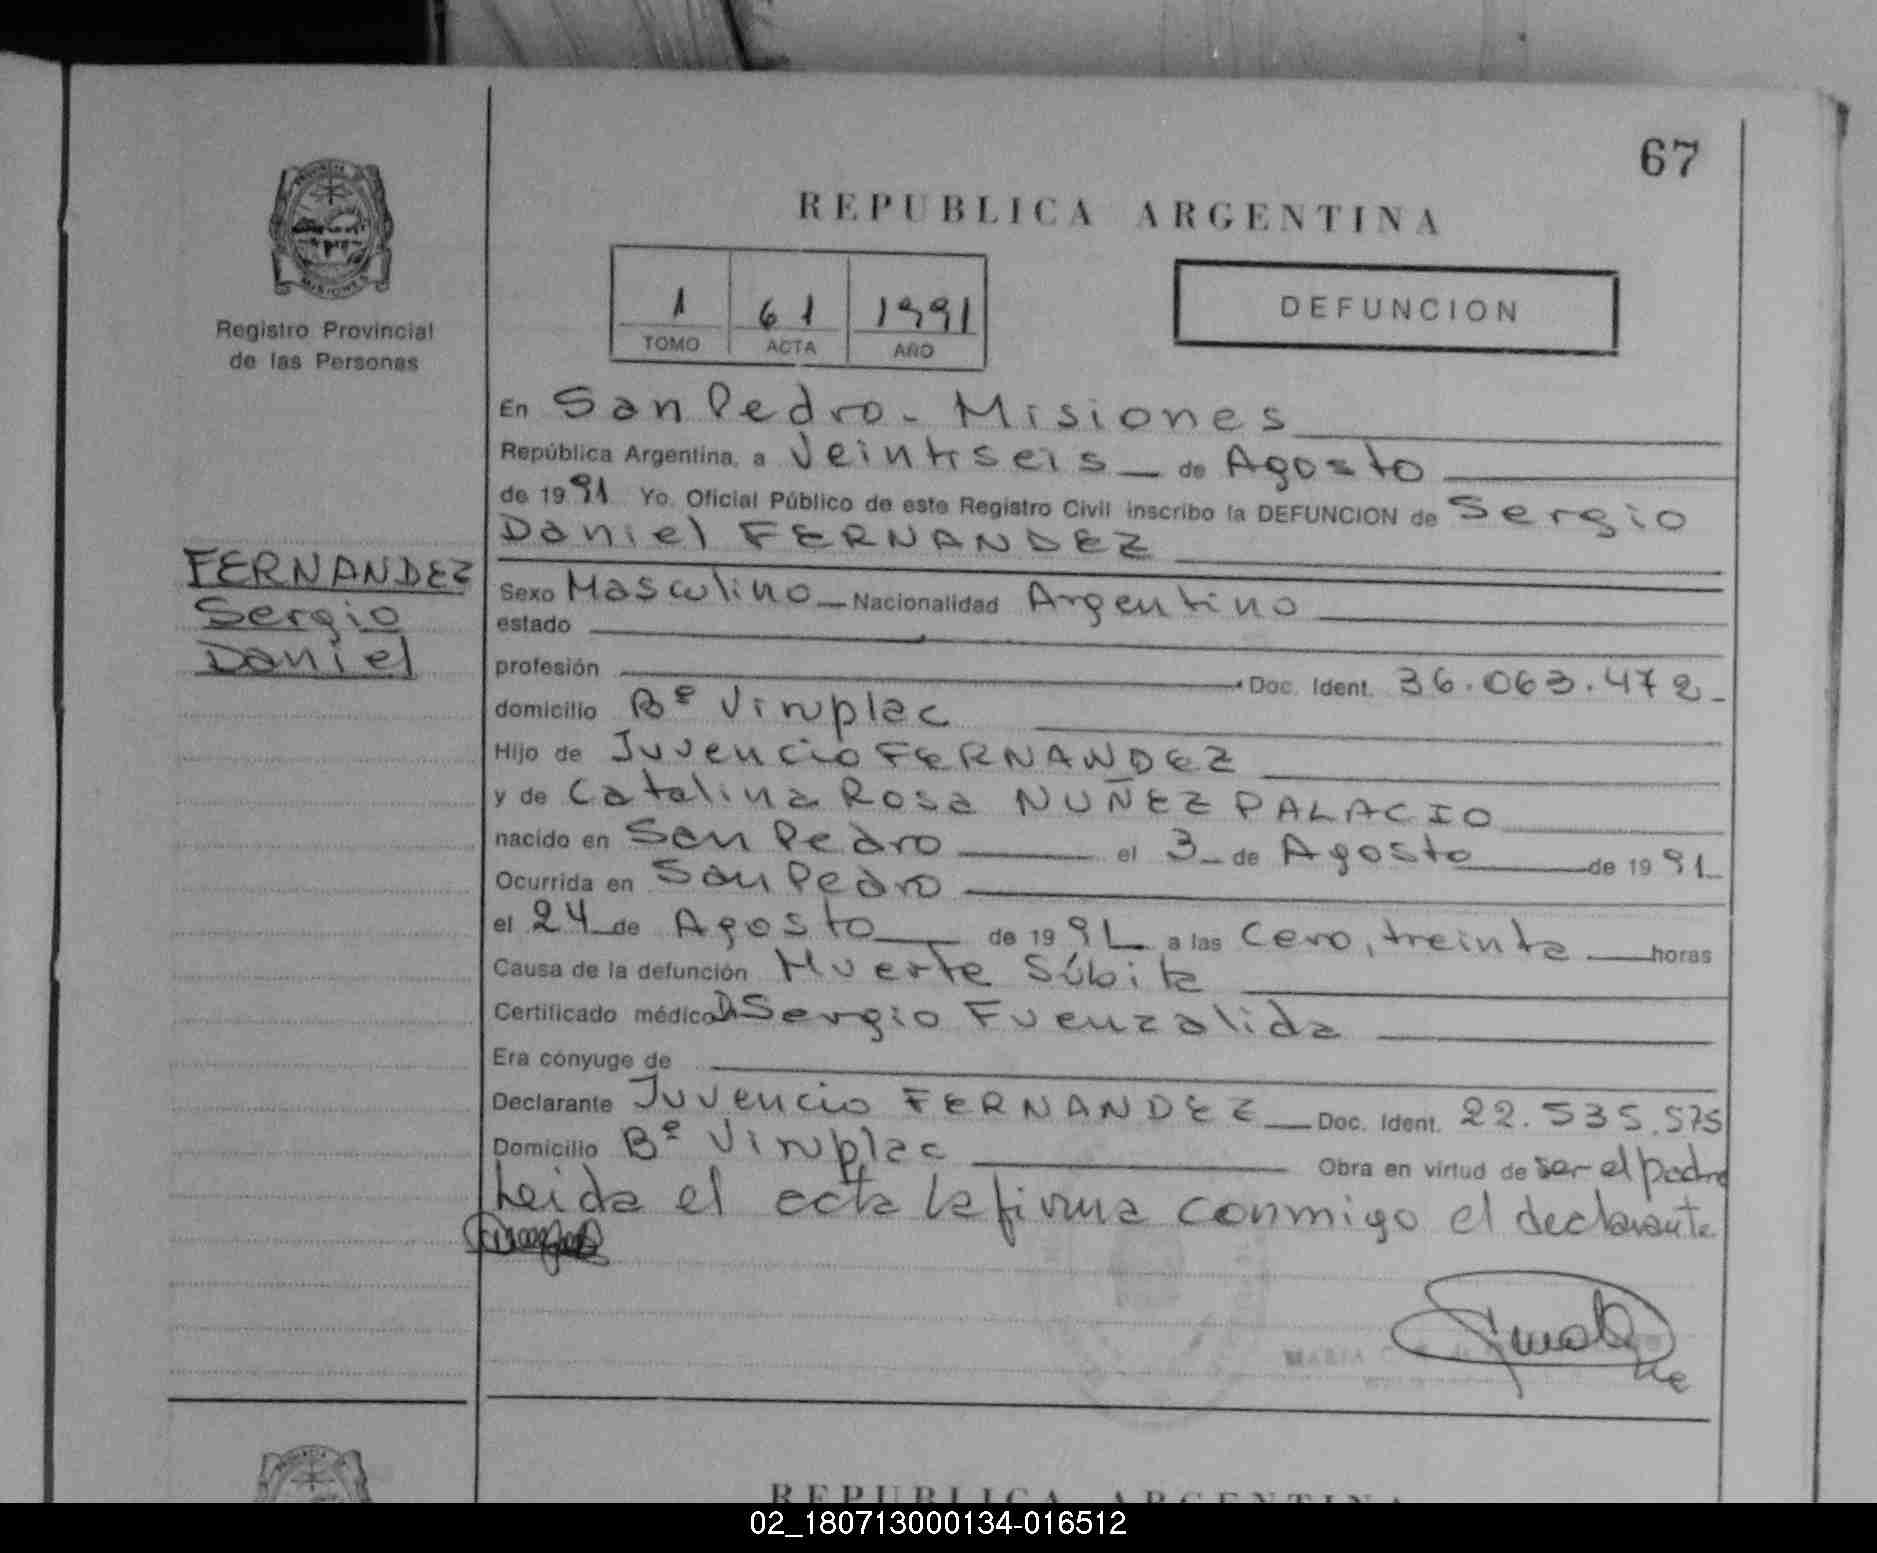 67
REPUBLICA ARGENTINA
1 61 1991
TOMO ACTA AÑO
DEFUNCION
PROVINCIA DE
MISIONES
Registro Provincial
de las Personas
FERNANDEZ
Sergio
Daniel
En San Pedro - Misiones
República Argentina, a Veintiseis de Agosto
de 1991 Yo, Oficial Público de este Registro Civil inscribo la DEFUNCION de Sergio
Daniel FERNANDEZ
Sexo Masculino Nacionalidad Argentino
estado
profesión Doc. Ident. 36.063.472
domicilio Bº Vinplac
Hijo de Juvencio FERNANDEZ
y de Catalina Rosa NUÑEZ PALACIO
nacido en San Pedro el 3 de Agosto de 1991
Ocurrida en San Pedro
el 24 de Agosto de 1991 a las Cero, treinta horas
Causa de la defunción Muerte Súbita
Certificado médico Dr Sergio Fuenzalida
Era cónyuge de
Declarante Juvencio FERNANDEZ Doc. Ident. 22.535.575
Domicilio Bº Vinplac Obra en virtud de ser el padre
Leida el acta la firma conmigo el declarante
MARIA
REPUBLICA ARGENTINA
02_180713000134-016512